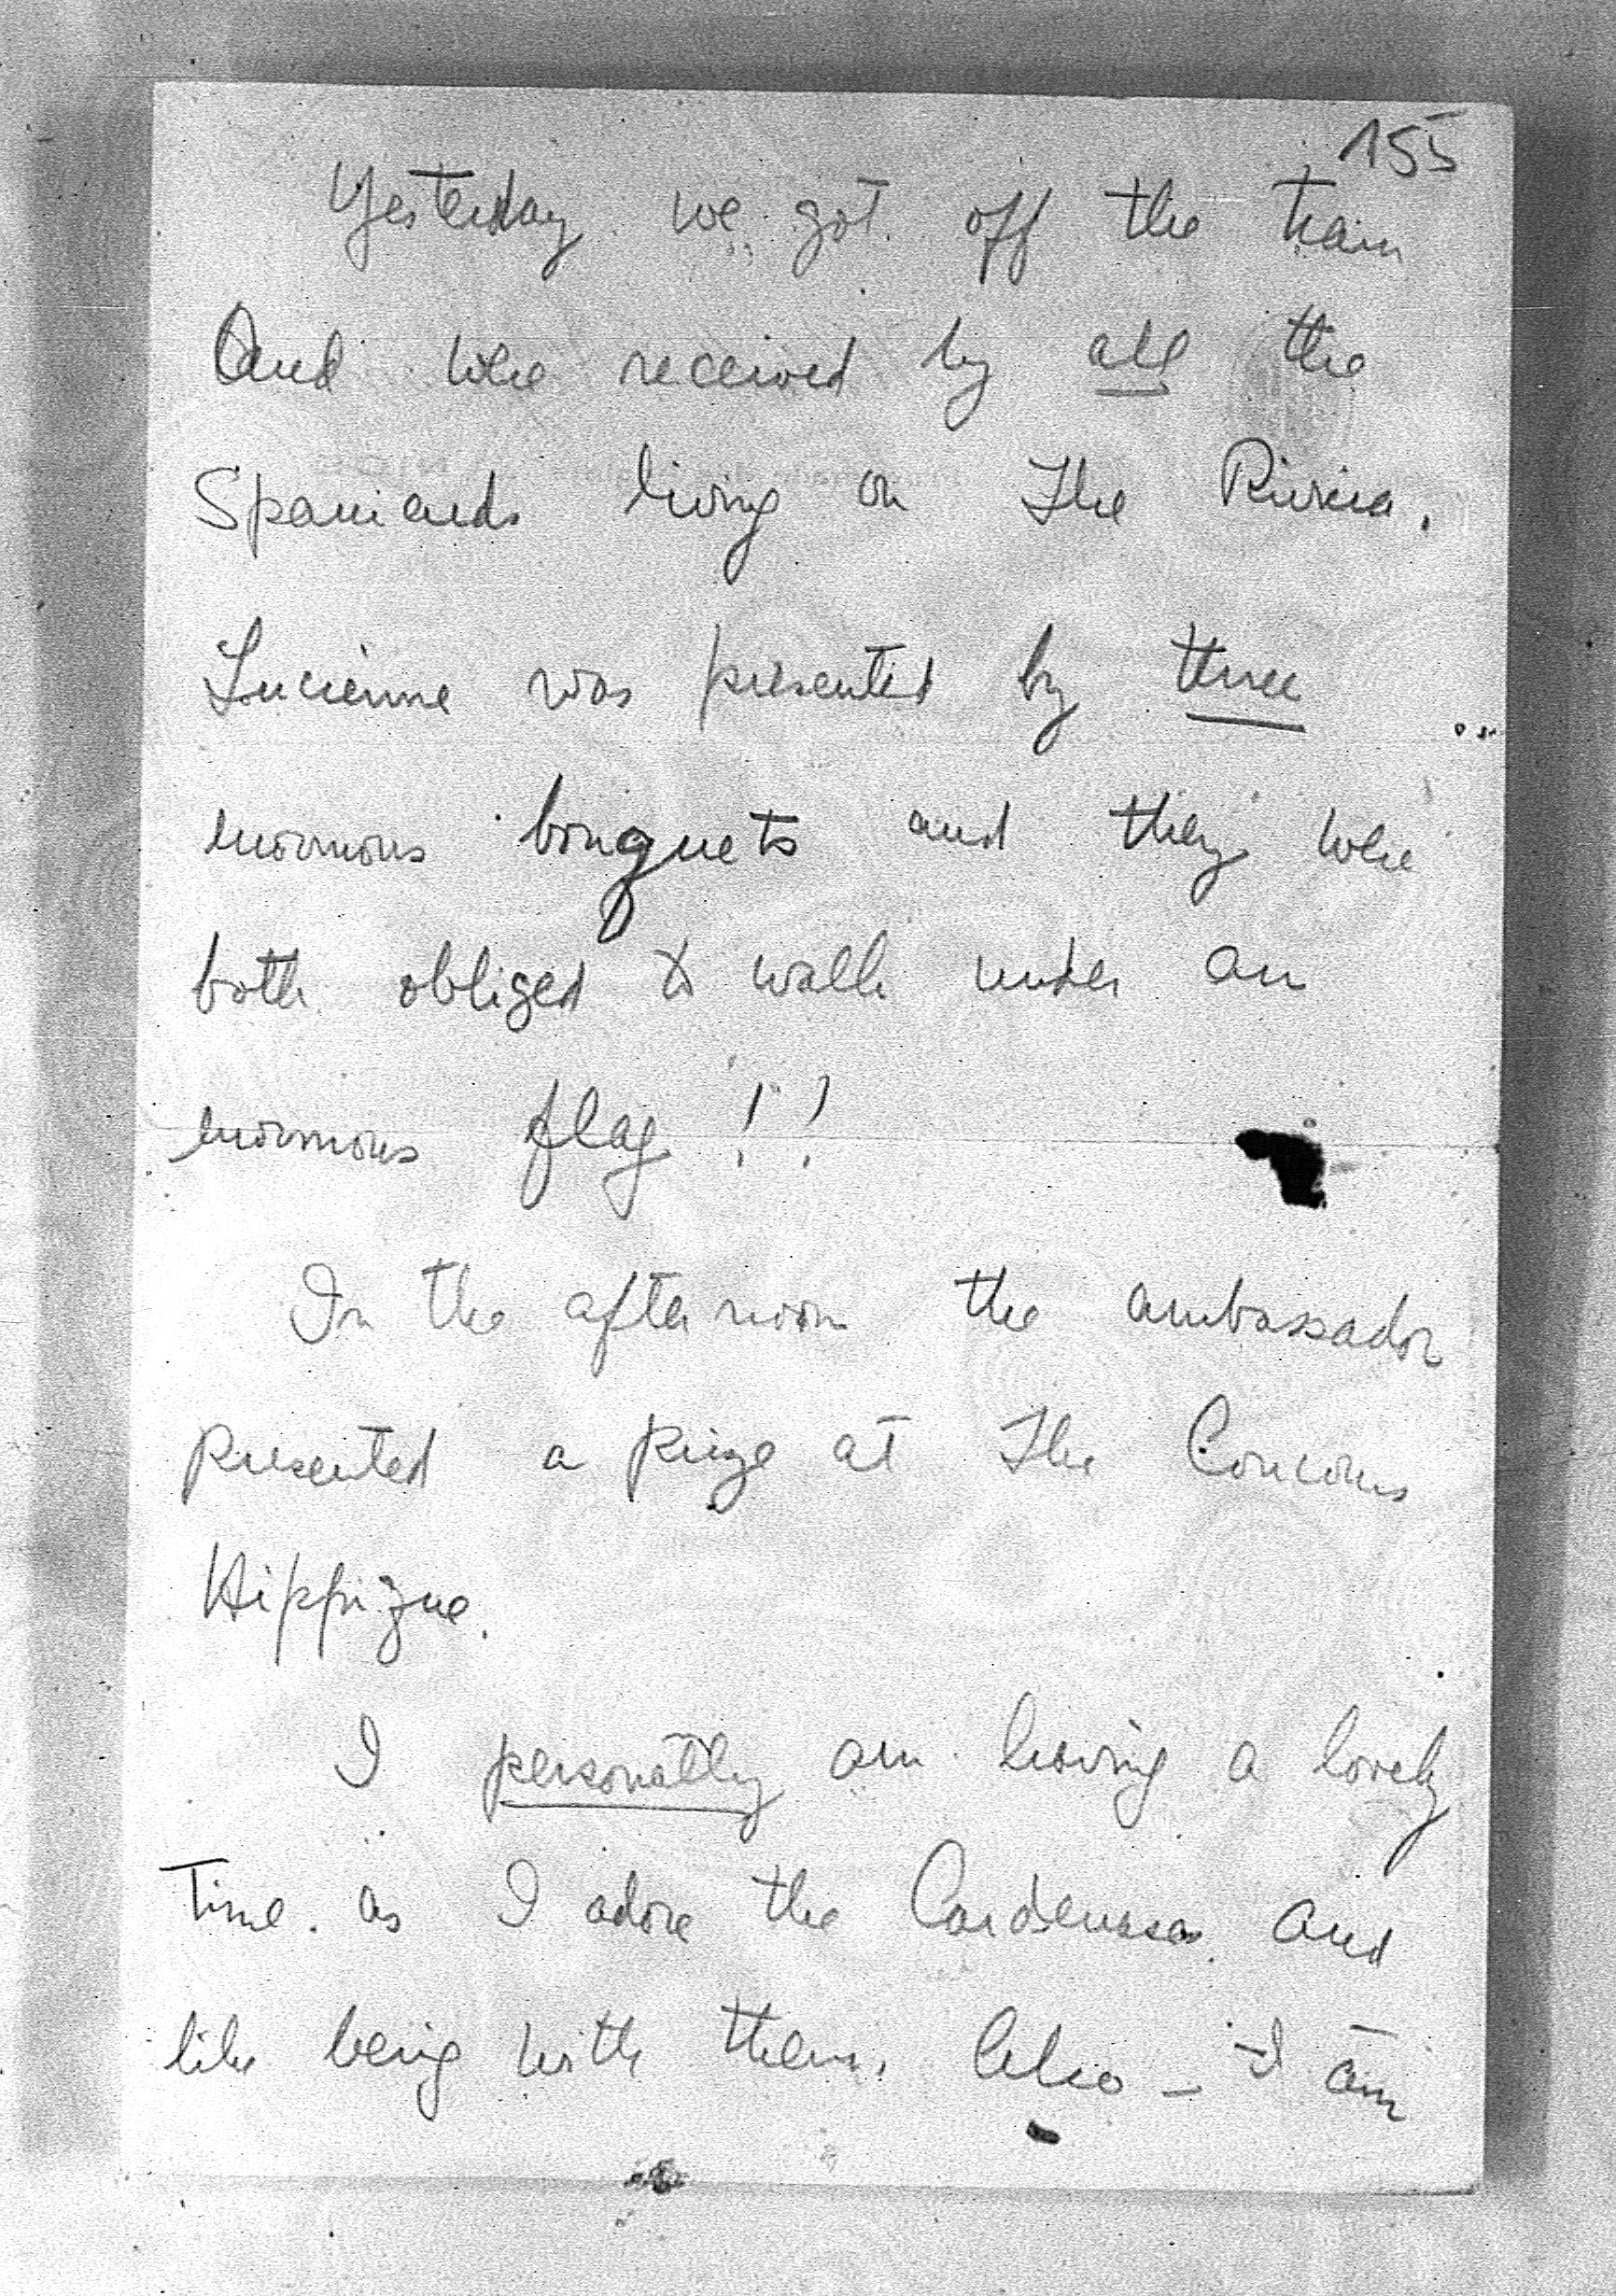 155
Yesterday we got off the train
And were received by all the
Spaniards living on the Riviera.
Lucienne was presented by three
enormous bouquets and they were
both obliged to walk under an
enormous flag !!
In the afternoon the ambassador
presented a prize at the Concours
Hippique.
I personally am having a lovely
Time. as I adore the Cardenases and
like being with them. Also – I am